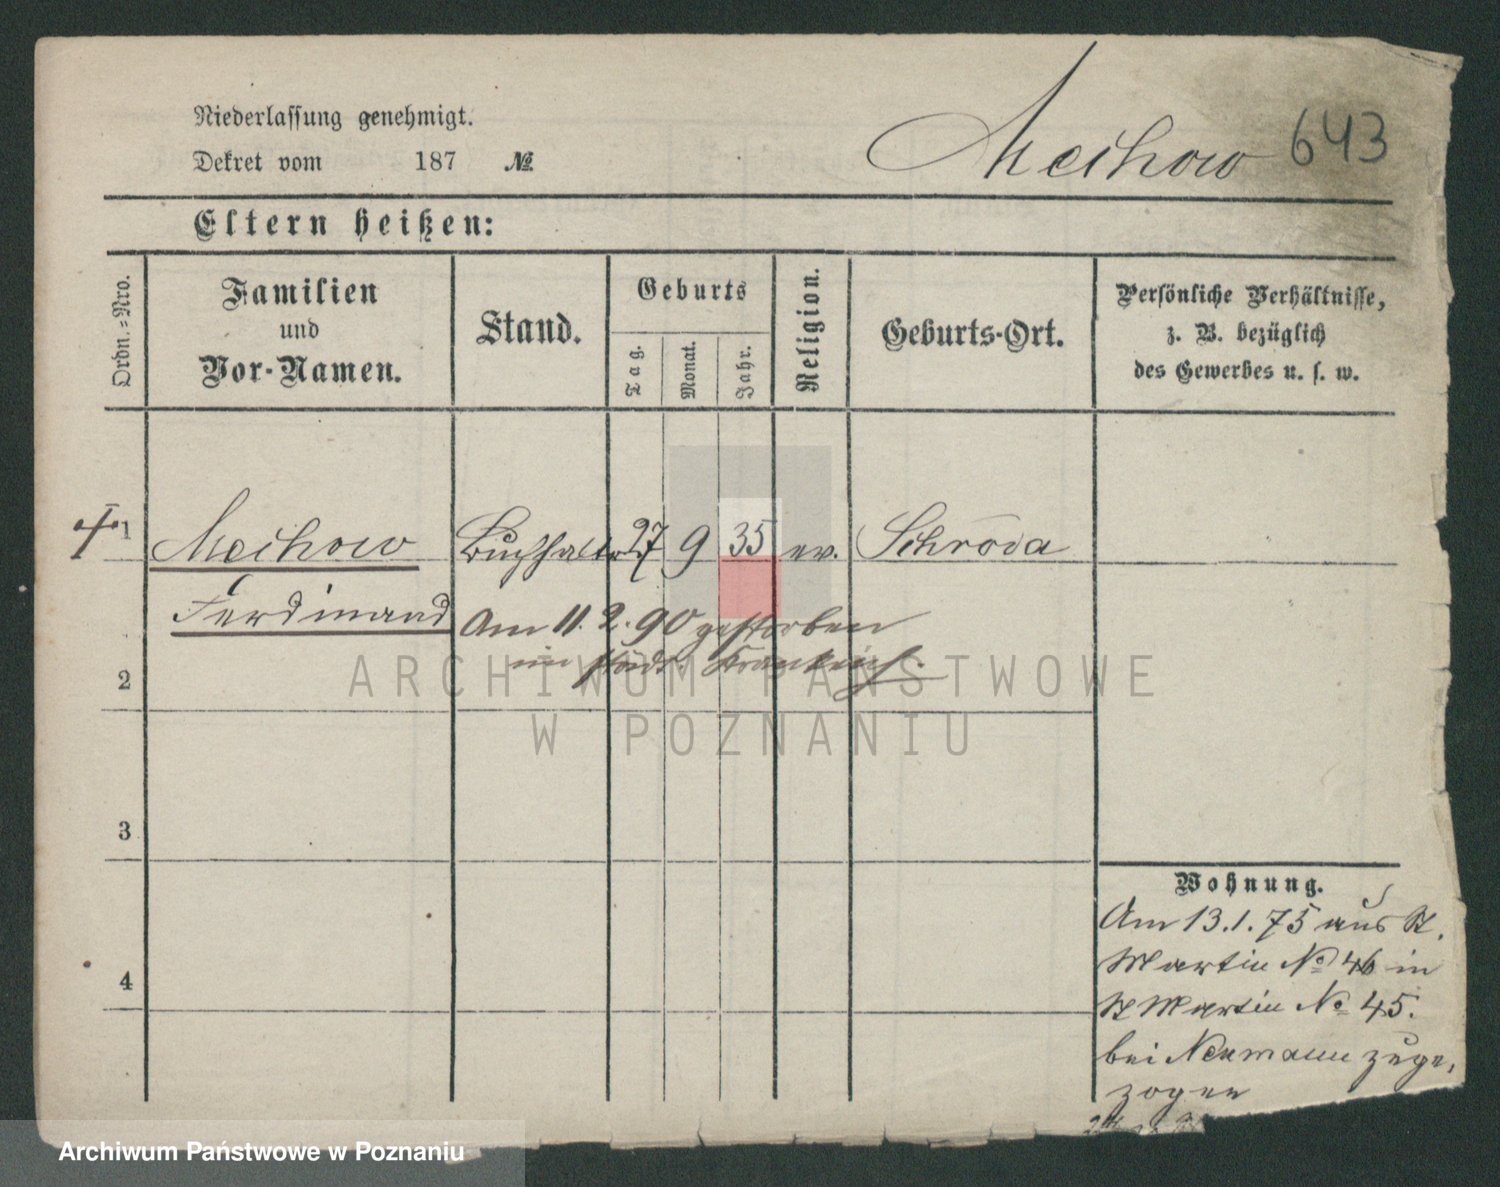 Niederlassung genehmigt.
Dekret vom 187 №
Mechow 643
Eltern heißen:
Ordn.-Nro.
Familien und Vor-Namen.
Stand.
Geburts
Tag.
Monat.
Jahr.
Religion.
Geburts-Ort.
Persönliche Verhältnisse,
z. B. bezüglich
des Gewerbes u. s. w.
1 Mechow Buchhalter 27 9 35 ev. Schroda
Ferdinand
Am 11.2.90 gestorben
im städt. Krankenh.
2
3
4
Wohnung.
Am 13.1.75 aus St.
Martin No 46 in
St Martin No 45.
bei Neumann zuge-
zogen
ARCHIWUM PAŃSTWOWE
W POZNANIU
Archiwum Państwowe w Poznaniu